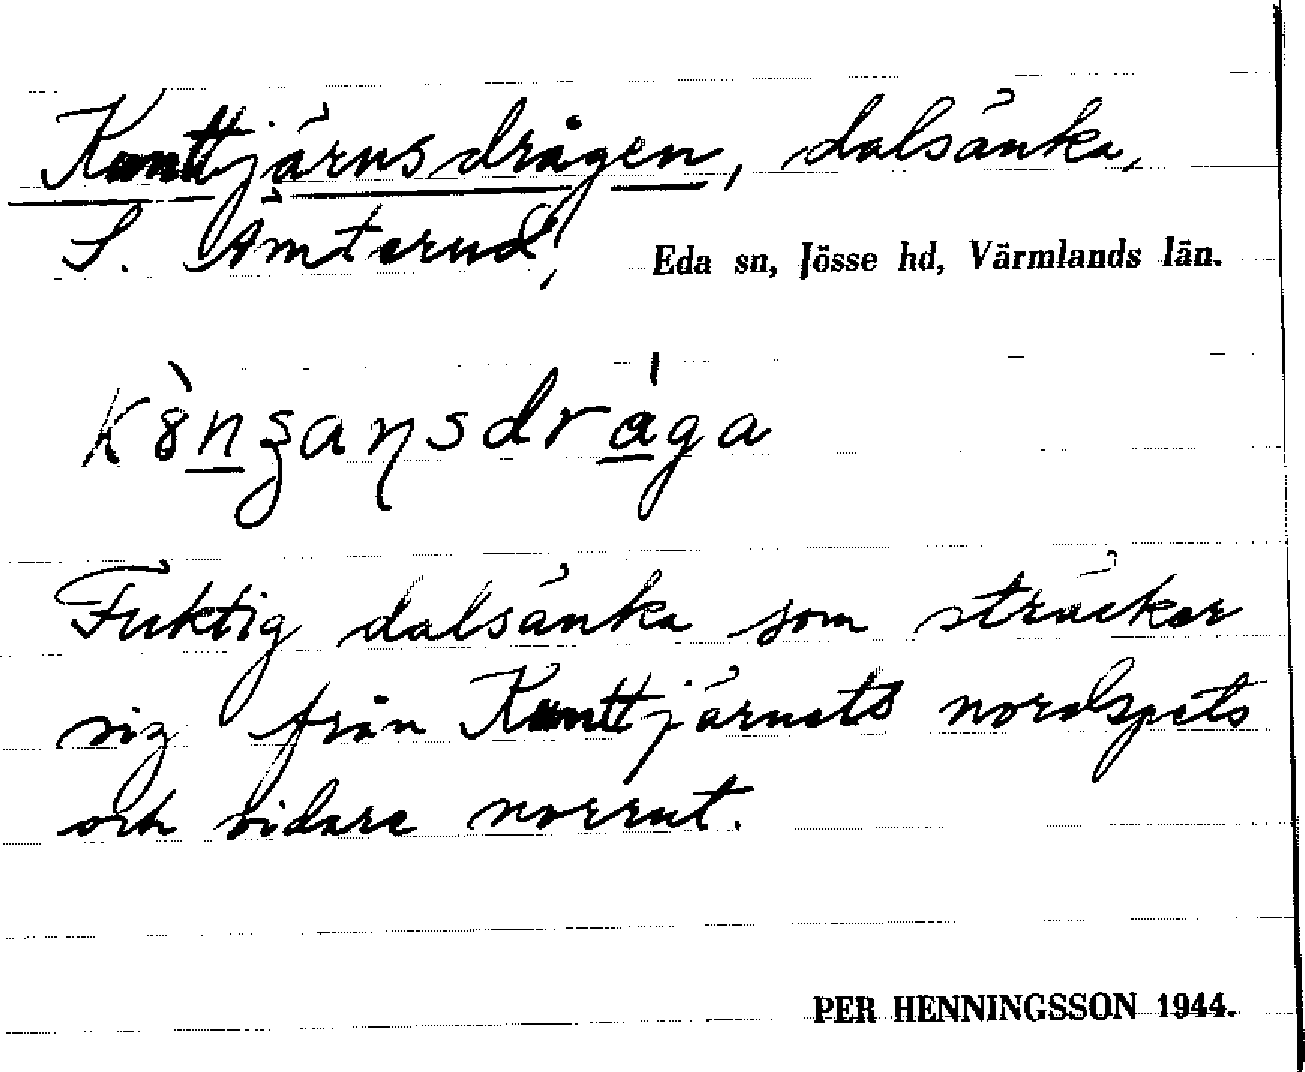 Kunttjärnsdrågen, dalsänka,
S. Ämterud,
Eda sn, Jösse hd, Värmlands län.
Fuktig dalsänka som sträcker
sig från Kunttjärnets nordspets
och vidare norrut.
PER HENNINGSSON 1944.